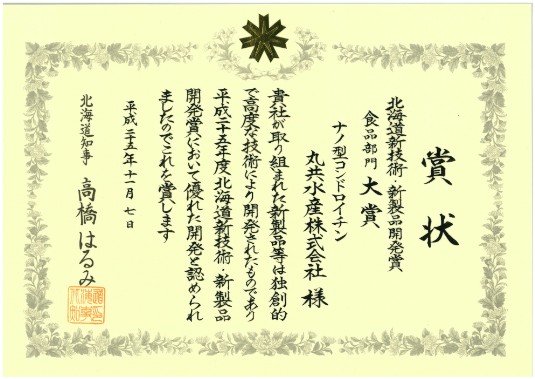 賞状
北海道新技術・新製品開発賞
食品部門 大賞
ナノ型コンドロイチン
丸共水産株式会社 様
貴社が取り組まれた新製品等は独創的
で高度な技術により開発されたものであり
平成二十五年度北海道新技術・新製品
開発賞において優れた開発と認められ
ましたのでこれを賞します
平成二十五年十一月七日
北海道知事 高橋はるみ